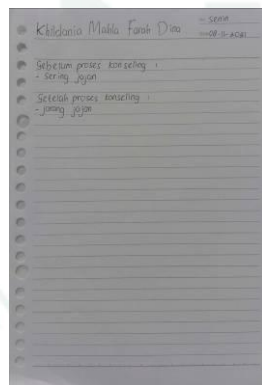 - senin
Khildania Mabla Farah Dina
Sebelum proses konseling :
- sering jajan
Setelah proses konseling :
- jarang jajan